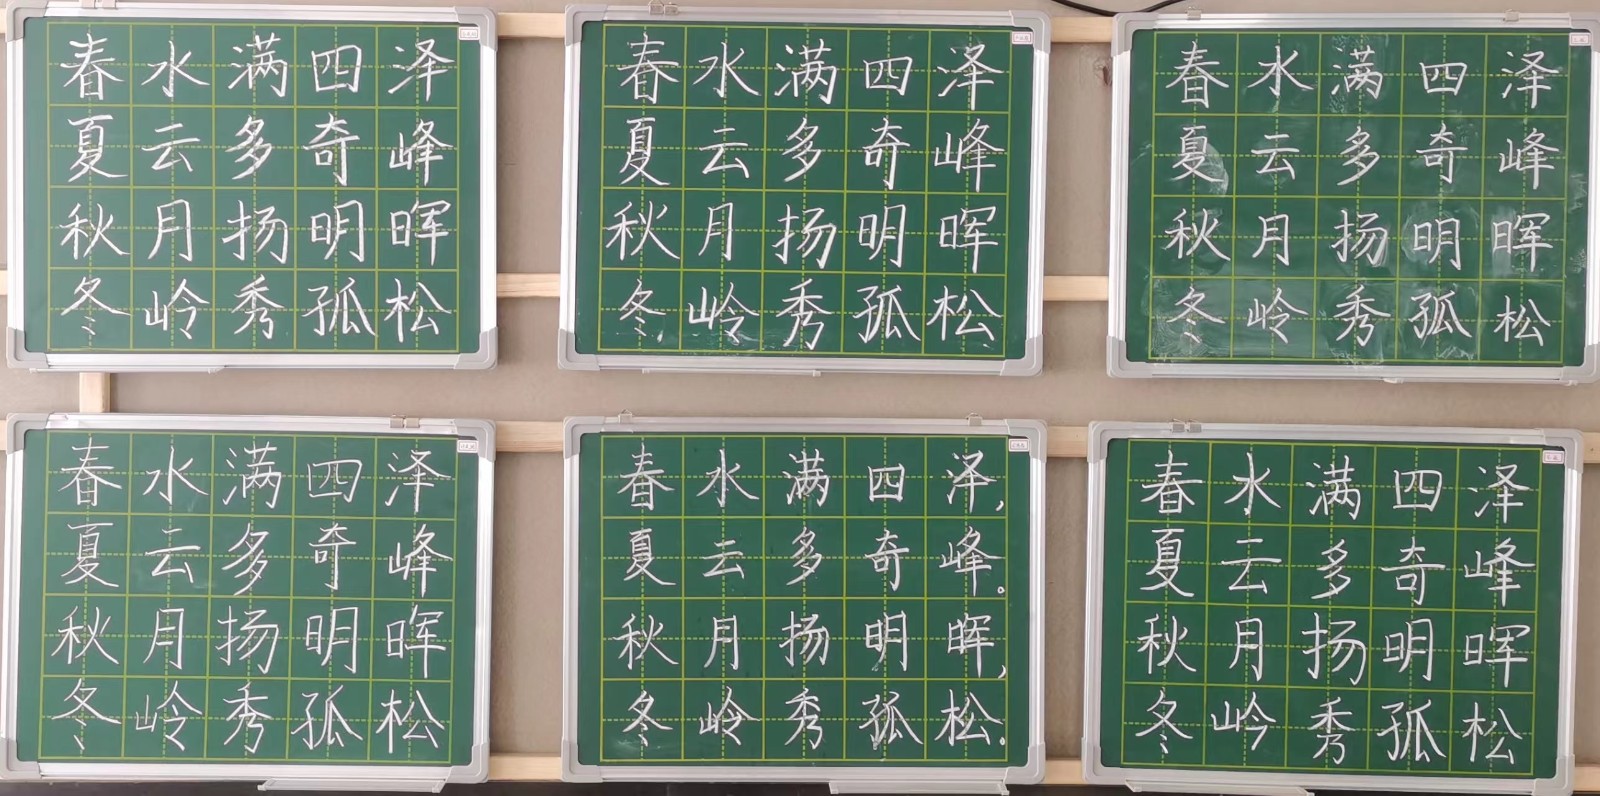 春水满四泽
夏云多奇峰
秋月扬明晖
冬岭秀孤松
春水满四泽
夏云多奇峰
秋月扬明晖
冬岭秀孤松
春水满四泽
夏云多奇峰
秋月扬明晖
冬岭秀孤松
春水满四泽
夏云多奇峰
秋月扬明晖
冬岭秀孤松
春水满四泽，
夏云多奇峰。
秋月扬明晖，
冬岭秀孤松。
春水满四泽
夏云多奇峰
秋月扬明晖
冬岭秀孤松